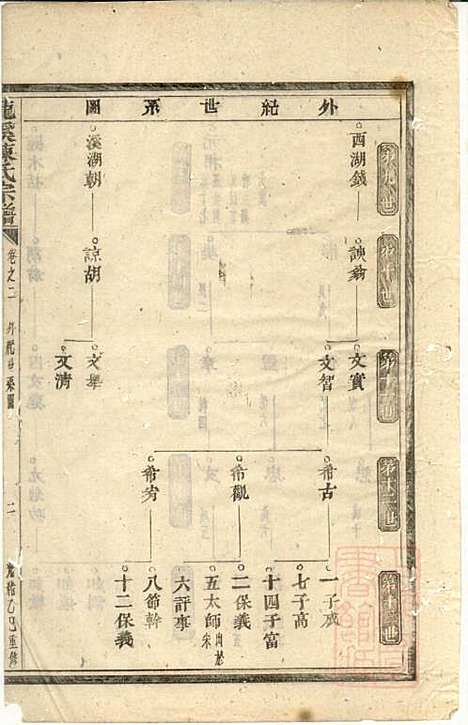 外紀世系圖
第九世
第十世
第十一世
第十二世
第十三世
西湖錢
諛翁
文實
文智
希古
希觀
希夯
一子成
七子高
十四子富
二保義
五太師
六評事
八節幹
十二保義
溪湖朝
諒胡
文舉
文清
龍溪陳氏宗譜
卷之二
外紀世系圖
二
光緒乙巳重修